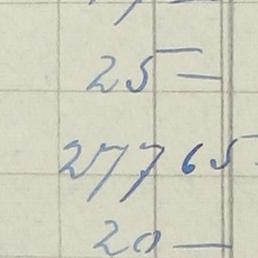 25 —
277 65
20 —